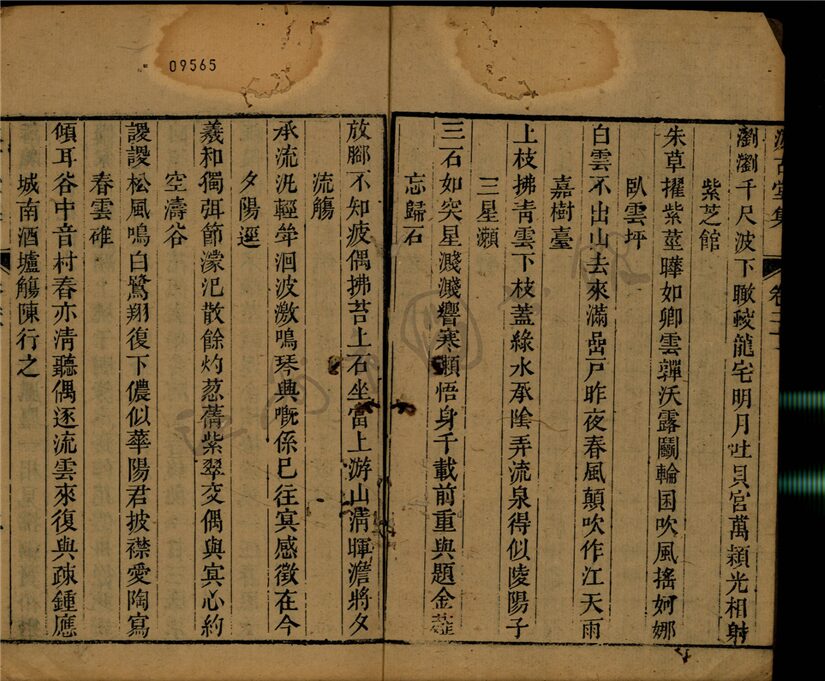 09565
瀏瀏千尺波下瞰龍宅明月吐貝宮萬頴光相射
紫芝館
朱草擢紫莖曄如卿雲嚲沃露鬭輪囷吹風搖妸娜
臥雲坪
白雲不出山去來滿嵒戸昨夜春風顛吹作江天雨
嘉樹臺
上枝拂青雲下枝蓋綠水承陰弄流泉得似陵陽子
三星瀨
三石如突星濺濺響寒瀨悟身千載前重與題金薤
忘歸石
放腳不知疲偶拂苔上石坐當上游山清暉澹將夕
流觴
承流汎輕斝洄波激鳴琴興嘅係已往寅感徵在今
夕陽逕
羲和獨弭節濛汜散餘灼蔥蒨紫翠交偶與寅心約
空濤谷
謖謖松風鳴白鷺翔復下儂似華陽君披襟愛陶寫
春雲碓
傾耳谷中音村舂亦清聽偶逐流雲來復與疎鍾應
城南酒壚觴陳行之